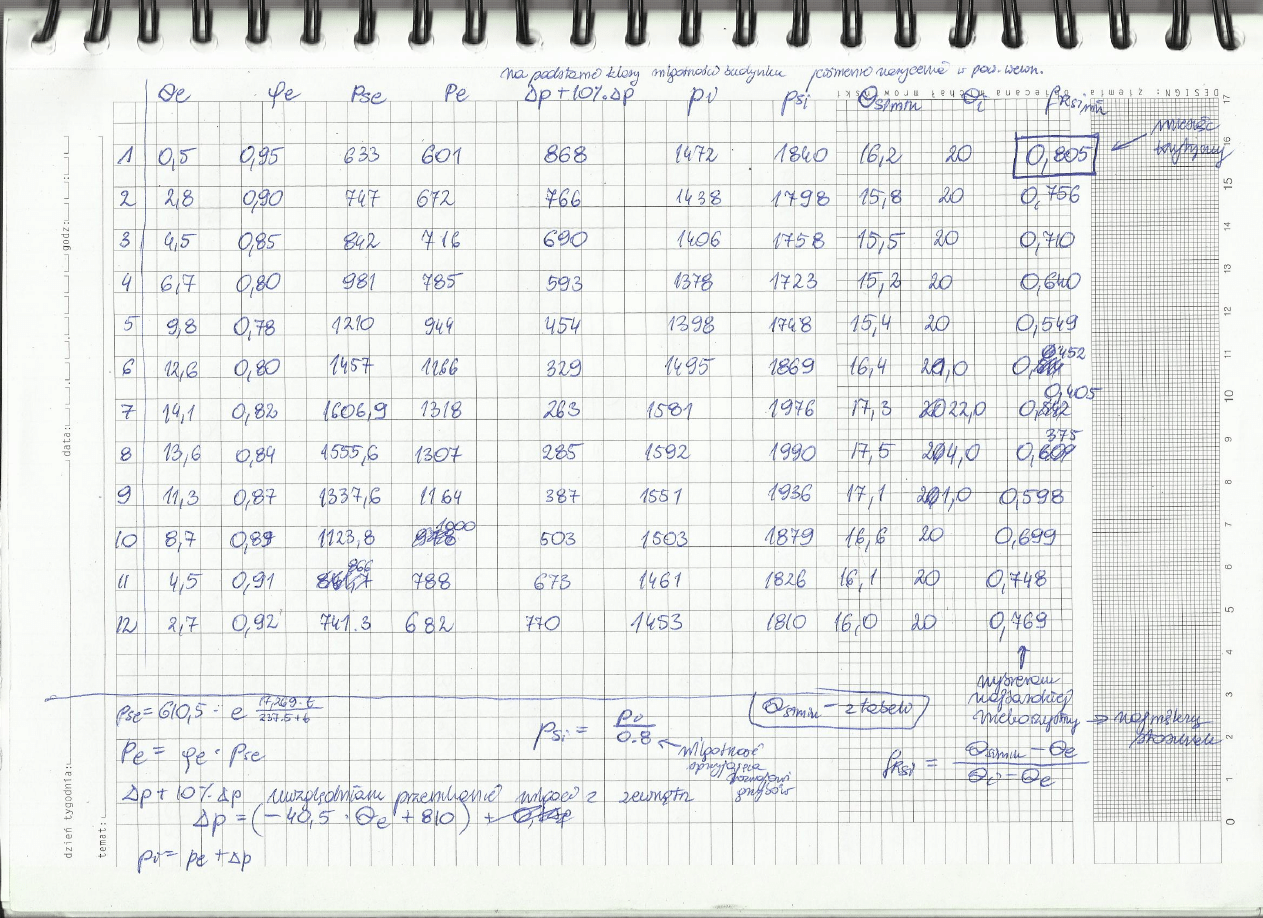 na podstawie klasy wilgotności budynku
ciśnienie nasycenia w pow. wewn.
Θe φe Pse Pe Δp+10%·Δp pv psi Θsimin Θi fRsi min
1 0,5 0,95 633 601 868 1472 1840 16,2 20 0,805
2 2,8 0,90 747 672 766 1438 1798 15,8 20 0,756
3 4,5 0,85 842 716 690 1406 1758 15,5 20 0,710
4 6,7 0,80 981 785 593 1378 1723 15,2 20 0,640
5 9,8 0,78 1210 944 454 1398 1748 15,4 20 0,549
6 12,6 0,80 1457 1166 329 1495 1869 16,4 21,0 0,452
7 14,1 0,82 1606,9 1318 263 1581 1976 17,3 22,0 0,405
8 13,6 0,84 1555,6 1307 285 1592 1990 17,5 24,0 0,375
9 11,3 0,87 1337,6 1164 387 1551 1936 17,1 21,0 0,598
10 8,7 0,89 1123,8 1000 503 1503 1879 16,6 20 0,699
11 4,5 0,91 866 788 673 1461 1826 16,1 20 0,748
12 2,7 0,92 741.3 682 770 1453 1810 16,0 20 0,769
miesiąc
krytyczny
wybieram
najbardziej
niekorzystny → największy
pse = 610,5 · e 17,269·t / 237.5+t
Pe = φe · Pse
Δp+10%·Δp uwzględniam przenikanie wilgoci z zewnątrz
Δp = (−40,5 · Θe + 810) +
pv = pe + Δp
psi = pv / 0.8
wilgotność
sprzyjająca
rozwojowi
grzybów
Θsimin – z tabelki
fRsi = Θsimin − Θe / Θi − Θe
dzień tygodnia: data: godz:
temat:
0 1 2 3 4 5 6 7 8 9 10 11 12 13 14 15 16 17